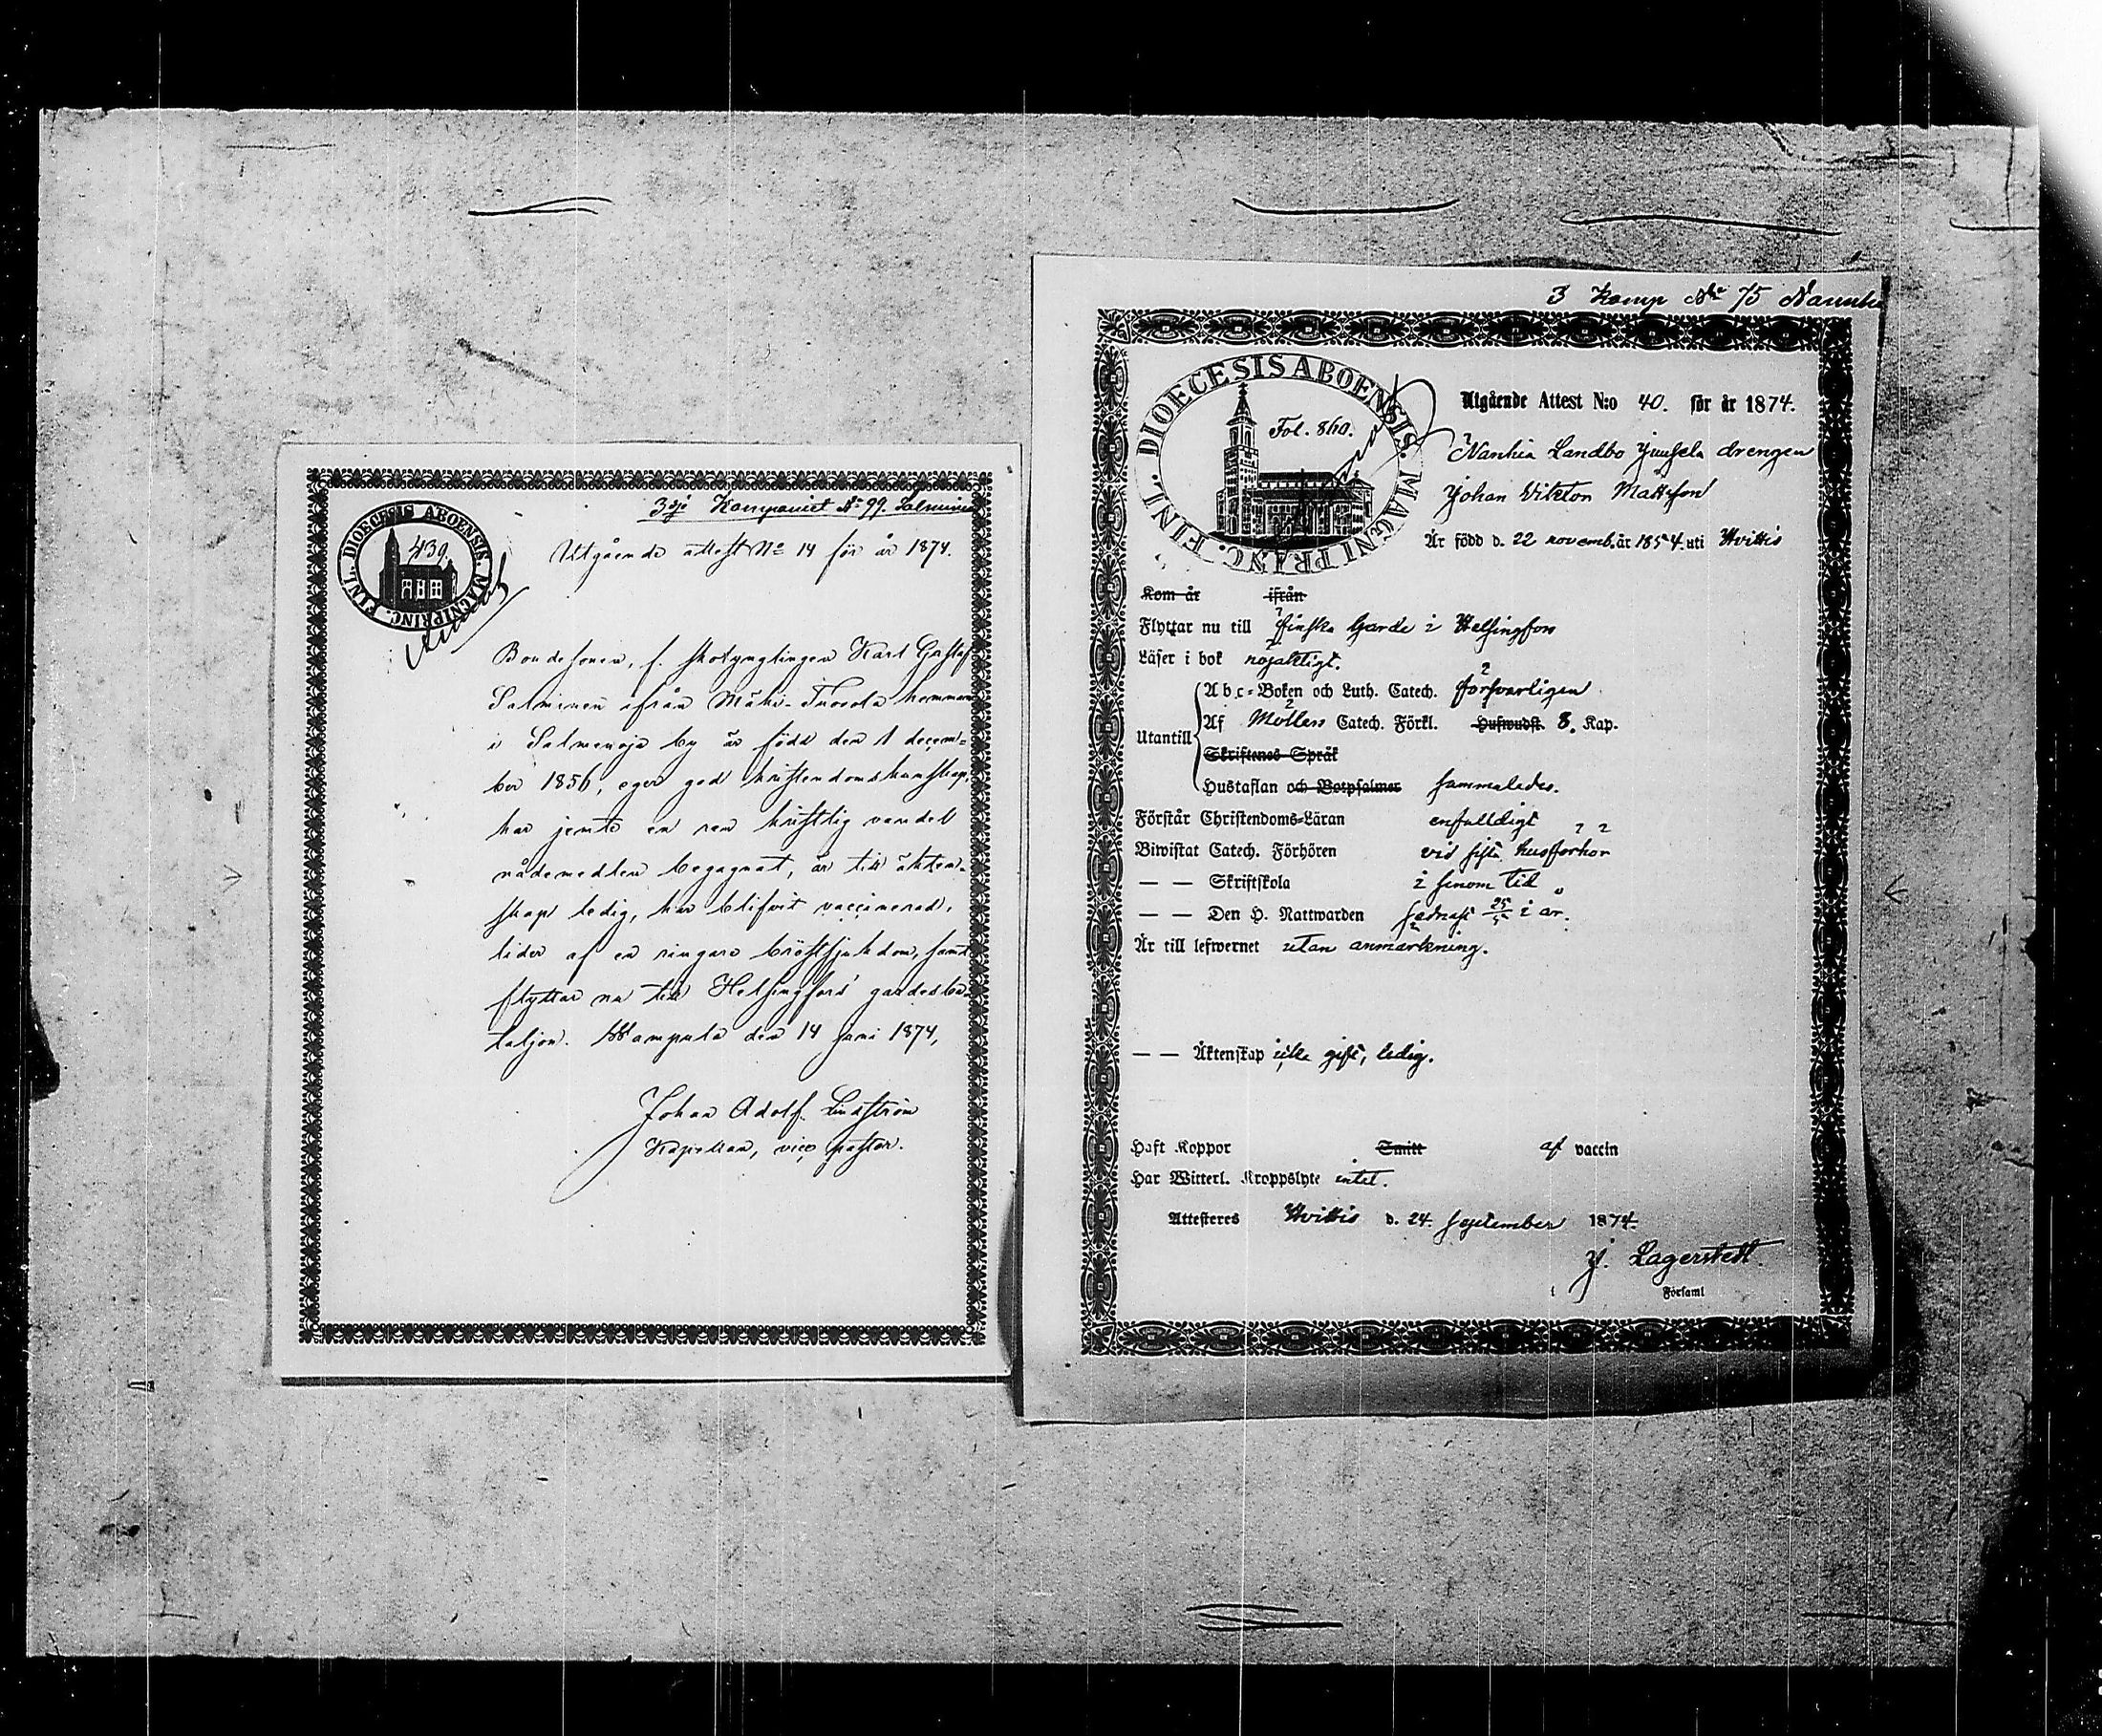 3dje Kompaniet No 99. Salminen
DIOECESIS ABOENSIS MAGNI PRINC. FINL.
439.
Utgående attest No 14 för år 1874.
Bondesonen, f. skolynglingen Karl Gustaf
Salminen ifrån Mäki-Tuosola hemman
i Salmenoja by är född den 1 decem-
ber 1856, eger god kristendomskunskap,
har jemte en ren kristlig vandel
nådemedlen begagnat, är till äkten-
skap ledig, har blifvit vaccinerad,
lider af en ringare bröstsjukdom, samt
flyttar nu till Helsingfors' gardesba-
taljon. Wampula den 14 Juni 1874,
Johan Adolf Lindström
Kapellan, vice pastor.
3 Komp No 75 Nanhia
DIOECESIS ABOENSIS. MAGNI PRINC. FINL.
Fol. 860.
Utgående Attest N:o 40. för år 1874.
Nanhia Landbo Juusela drengen
Johan Viktor Mattsson
Är född d. 22 novemb. år 1854. uti Hvittis
Kom år ifrån
Flyttar nu till finska Garde i Helsingfors
Läser i bok nöjaktigt.
Utantill
A b c-Boken och Luth. Catech. försvarligen
Af Möllers Catech. Förkl. Hufwudst. 8. Kap.
Skriftenes Språk
Hustaflan och Botpsalmer sammaledes.
Förstår Christendoms-Läran enfaldigt
Biwistat Catech. Förhören vid sista husförhör
— — Skriftskola i sinom tid
— — Den H. Nattwarden sednast 25/5 i år.
Är till lefwernet utan anmärkning.
— — Äktenskap icke gift, ledig.
Haft Koppor Smitt af vaccin
Har Witterl. Kroppslyte intet.
Attesteres Hvittis d. 24. September 1874.
J. Lagerstedt.
i Församl